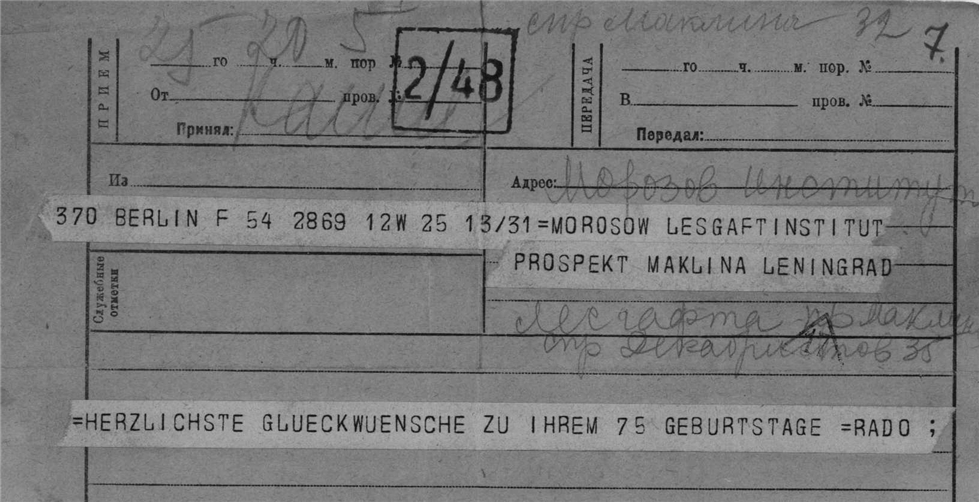 стр Маклина 32 7.
25 20 5
ПРИЕМ
го ч. м. пор №
2/48
От пров. №
Принял:
ПЕРЕДАЧА
го ч. м. пор. №
В пров. №
Передал:
Из
Адрес: Морозов Институт
370 BERLIN F 54 2869 12W 25 13/31 =MOROSOW LESGAFTINSTITUT
PROSPEKT MAKLINA LENINGRAD
Служебные отметки
Лесгафта пр Маклин
стр Декабристов 35
=HERZLICHSTE GLUECKWUENSCHE ZU IHREM 75 GEBURTSTAGE =RADO ;